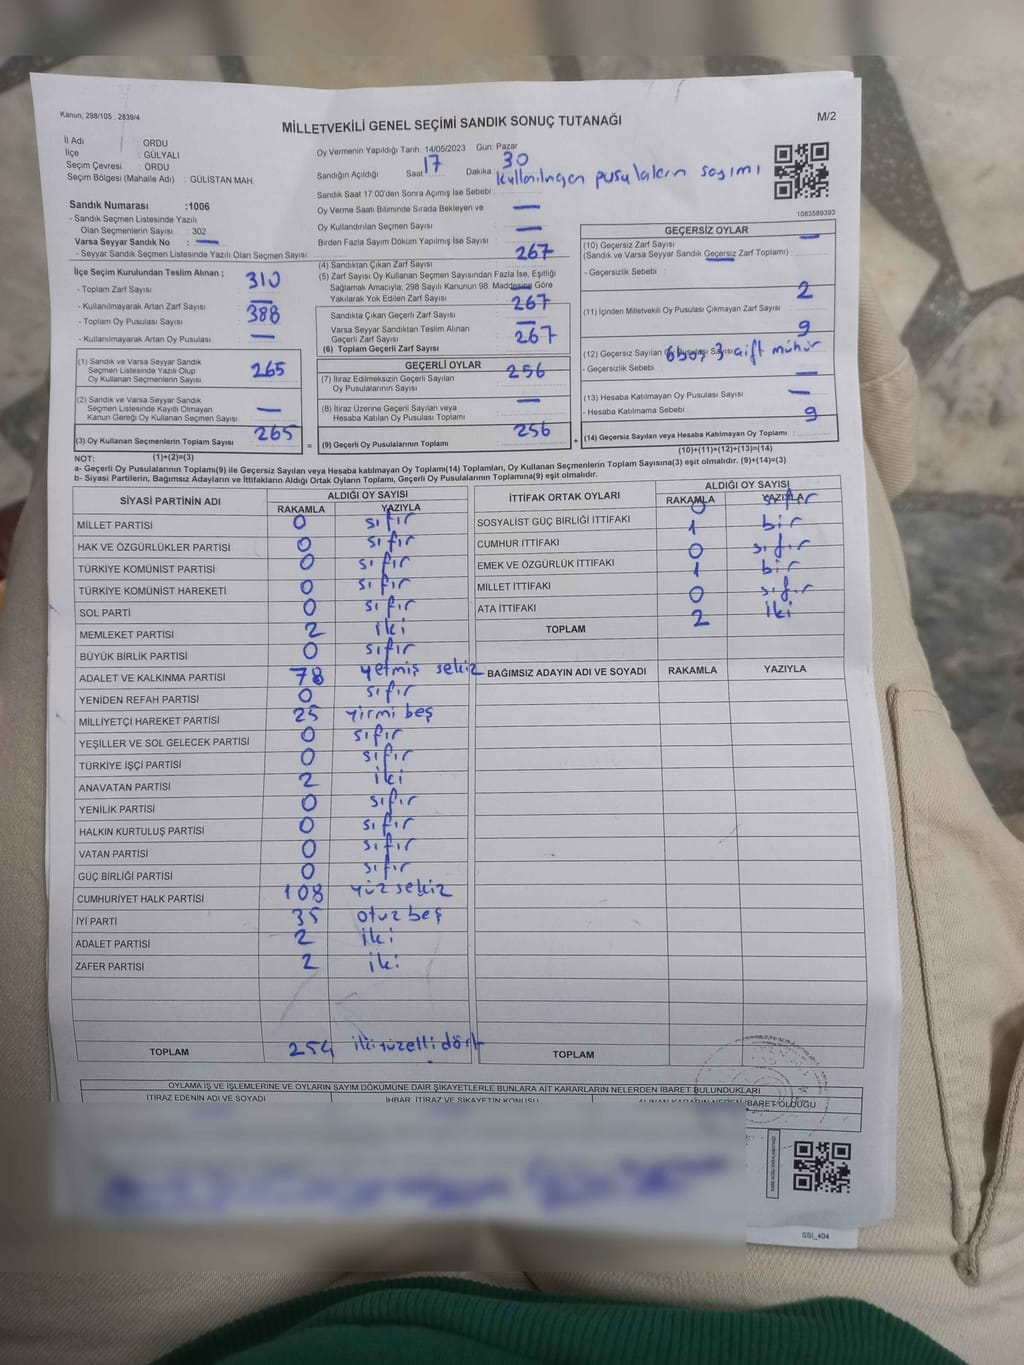 Kanun; 298/105 , 2839/4
MİLLETVEKİLİ GENEL SEÇİMİ SANDIK SONUÇ TUTANAĞI
M/2
İl Adı : ORDU
İlçe : GÜLYALI
Seçim Çevresi : ORDU
Seçim Bölgesi (Mahalle Adı) : GÜLİSTAN MAH.
Oy Vermenin Yapıldığı Tarih : 14/05/2023 Gün: Pazar
Sandığın Açıldığı Saat 17 Dakika 30
Sandık Saat 17.00'den Sonra Açılmış İse Sebebi : kullanılmayan pusulaların sayımı
Oy Verme Saati Bitiminde Sırada Bekleyen ve
Oy Kullandırılan Seçmen Sayısı —
Birden Fazla Sayım Döküm Yapılmış İse Sayısı —
1083589393
Sandık Numarası :1006
- Sandık Seçmen Listesinde Yazılı
Olan Seçmenlerin Sayısı : 302
Varsa Seyyar Sandık No : —
- Seyyar Sandık Seçmen Listesinde Yazılı Olan Seçmen Sayısı
İlçe Seçim Kurulundan Teslim Alınan ;
- Toplam Zarf Sayısı : 310
- Kullanılmayarak Artan Zarf Sayısı : —
- Toplam Oy Pusulası Sayısı : 388
- Kullanılmayarak Artan Oy Pusulası : —
(1) Sandık ve Varsa Seyyar Sandık
Seçmen Listesinde Yazılı Olup
Oy Kullanan Seçmenlerin Sayısı : 265
(2) Sandık ve Varsa Seyyar Sandık
Seçmen Listesinde Kayıtlı Olmayan
Kanun Gereği Oy Kullanan Seçmen Sayısı : —
(3) Oy Kullanan Seçmenlerin Toplam Sayısı 265
(1)+(2)=(3)
(4) Sandıktan Çıkan Zarf Sayısı 267
(5) Zarf Sayısı Oy Kullanan Seçmen Sayısından Fazla İse, Eşitliği
Sağlamak Amacıyla; 298 Sayılı Kanunun 98. Maddesine Göre
Yakılarak Yok Edilen Zarf Sayısı —
Sandıkta Çıkan Geçerli Zarf Sayısı 267
Varsa Seyyar Sandıktan Teslim Alınan
Geçerli Zarf Sayısı —
(6) Toplam Geçerli Zarf Sayısı 267
GEÇERLİ OYLAR
(7) İtiraz Edilmeksizin Geçerli Sayılan
Oy Pusulalarının Sayısı 256
(8) İtiraz Üzerine Geçerli Sayılan veya
Hesaba Katılan Oy Pusulası Toplamı —
(9) Geçerli Oy Pusulalarının Toplamı 256
GEÇERSİZ OYLAR
(10) Geçersiz Zarf Sayısı —
(Sandık ve Varsa Seyyar Sandık Geçersiz Zarf Toplamı) :
- Geçersizlik Sebebi : —
(11) İçinden Milletvekili Oy Pusulası Çıkmayan Zarf Sayısı 2
(12) Geçersiz Sayılan Oy Pusulası Sayısı 9
- Geçersizlik Sebebi : 6 boş, 3 çift mühür
(13) Hesaba Katılmayan Oy Pusulası Sayısı —
- Hesaba Katılmama Sebebi : —
(14) Geçersiz Sayılan veya Hesaba Katılmayan Oy Toplamı 9
(10)+(11)+(12)+(13)=(14)
NOT:
a- Geçerli Oy Pusulalarının Toplamı(9) ile Geçersiz Sayılan veya Hesaba katılmayan Oy Toplamı(14) Toplamları, Oy Kullanan Seçmenlerin Toplam Sayısına(3) eşit olmalıdır. (9)+(14)=(3)
b- Siyasi Partilerin, Bağımsız Adayların ve İttifakların Aldığı Ortak Oyların Toplamı, Geçerli Oy Pusulalarının Toplamına(9) eşit olmalıdır.
SİYASİ PARTİNİN ADI ALDIĞI OY SAYISI
RAKAMLA YAZIYLA
MİLLET PARTİSİ 0 sıfır
HAK VE ÖZGÜRLÜKLER PARTİSİ 0 sıfır
TÜRKİYE KOMÜNİST PARTİSİ 0 sıfır
TÜRKİYE KOMÜNİST HAREKETİ 0 sıfır
SOL PARTİ 0 sıfır
MEMLEKET PARTİSİ 2 iki
BÜYÜK BİRLİK PARTİSİ 0 sıfır
ADALET VE KALKINMA PARTİSİ 78 yetmiş sekiz
YENİDEN REFAH PARTİSİ 0 sıfır
MİLLİYETÇİ HAREKET PARTİSİ 25 yirmi beş
YEŞİLLER VE SOL GELECEK PARTİSİ 0 sıfır
TÜRKİYE İŞÇİ PARTİSİ 0 sıfır
ANAVATAN PARTİSİ 2 iki
YENİLİK PARTİSİ 0 sıfır
HALKIN KURTULUŞ PARTİSİ 0 sıfır
VATAN PARTİSİ 0 sıfır
GÜÇ BİRLİĞİ PARTİSİ 0 sıfır
CUMHURİYET HALK PARTİSİ 108 yüz sekiz
İYİ PARTİ 35 otuz beş
ADALET PARTİSİ 2 iki
ZAFER PARTİSİ 2 iki
TOPLAM 254 iki yüz elli dört
İTTİFAK ORTAK OYLARI ALDIĞI OY SAYISI
RAKAMLA YAZIYLA
SOSYALİST GÜÇ BİRLİĞİ İTTİFAKI 0 sıfır
CUMHUR İTTİFAKI 1 bir
EMEK VE ÖZGÜRLÜK İTTİFAKI 0 sıfır
MİLLET İTTİFAKI 1 bir
ATA İTTİFAKI 0 sıfır
TOPLAM 2 iki
BAĞIMSIZ ADAYIN ADI VE SOYADI RAKAMLA YAZIYLA
TOPLAM
OYLAMA İŞ VE İŞLEMLERİNE VE OYLARIN SAYIM DÖKÜMÜNE DAİR ŞİKAYETLERLE BUNLARA AİT KARARLARIN NELERDEN İBARET BULUNDUKLARI
İTİRAZ EDENİN ADI VE SOYADI İHBAR, İTİRAZ VE ŞİKAYETİN KONUSU ALINAN KARARIN NEDEN İBARET OLDUĞU
SSI_404